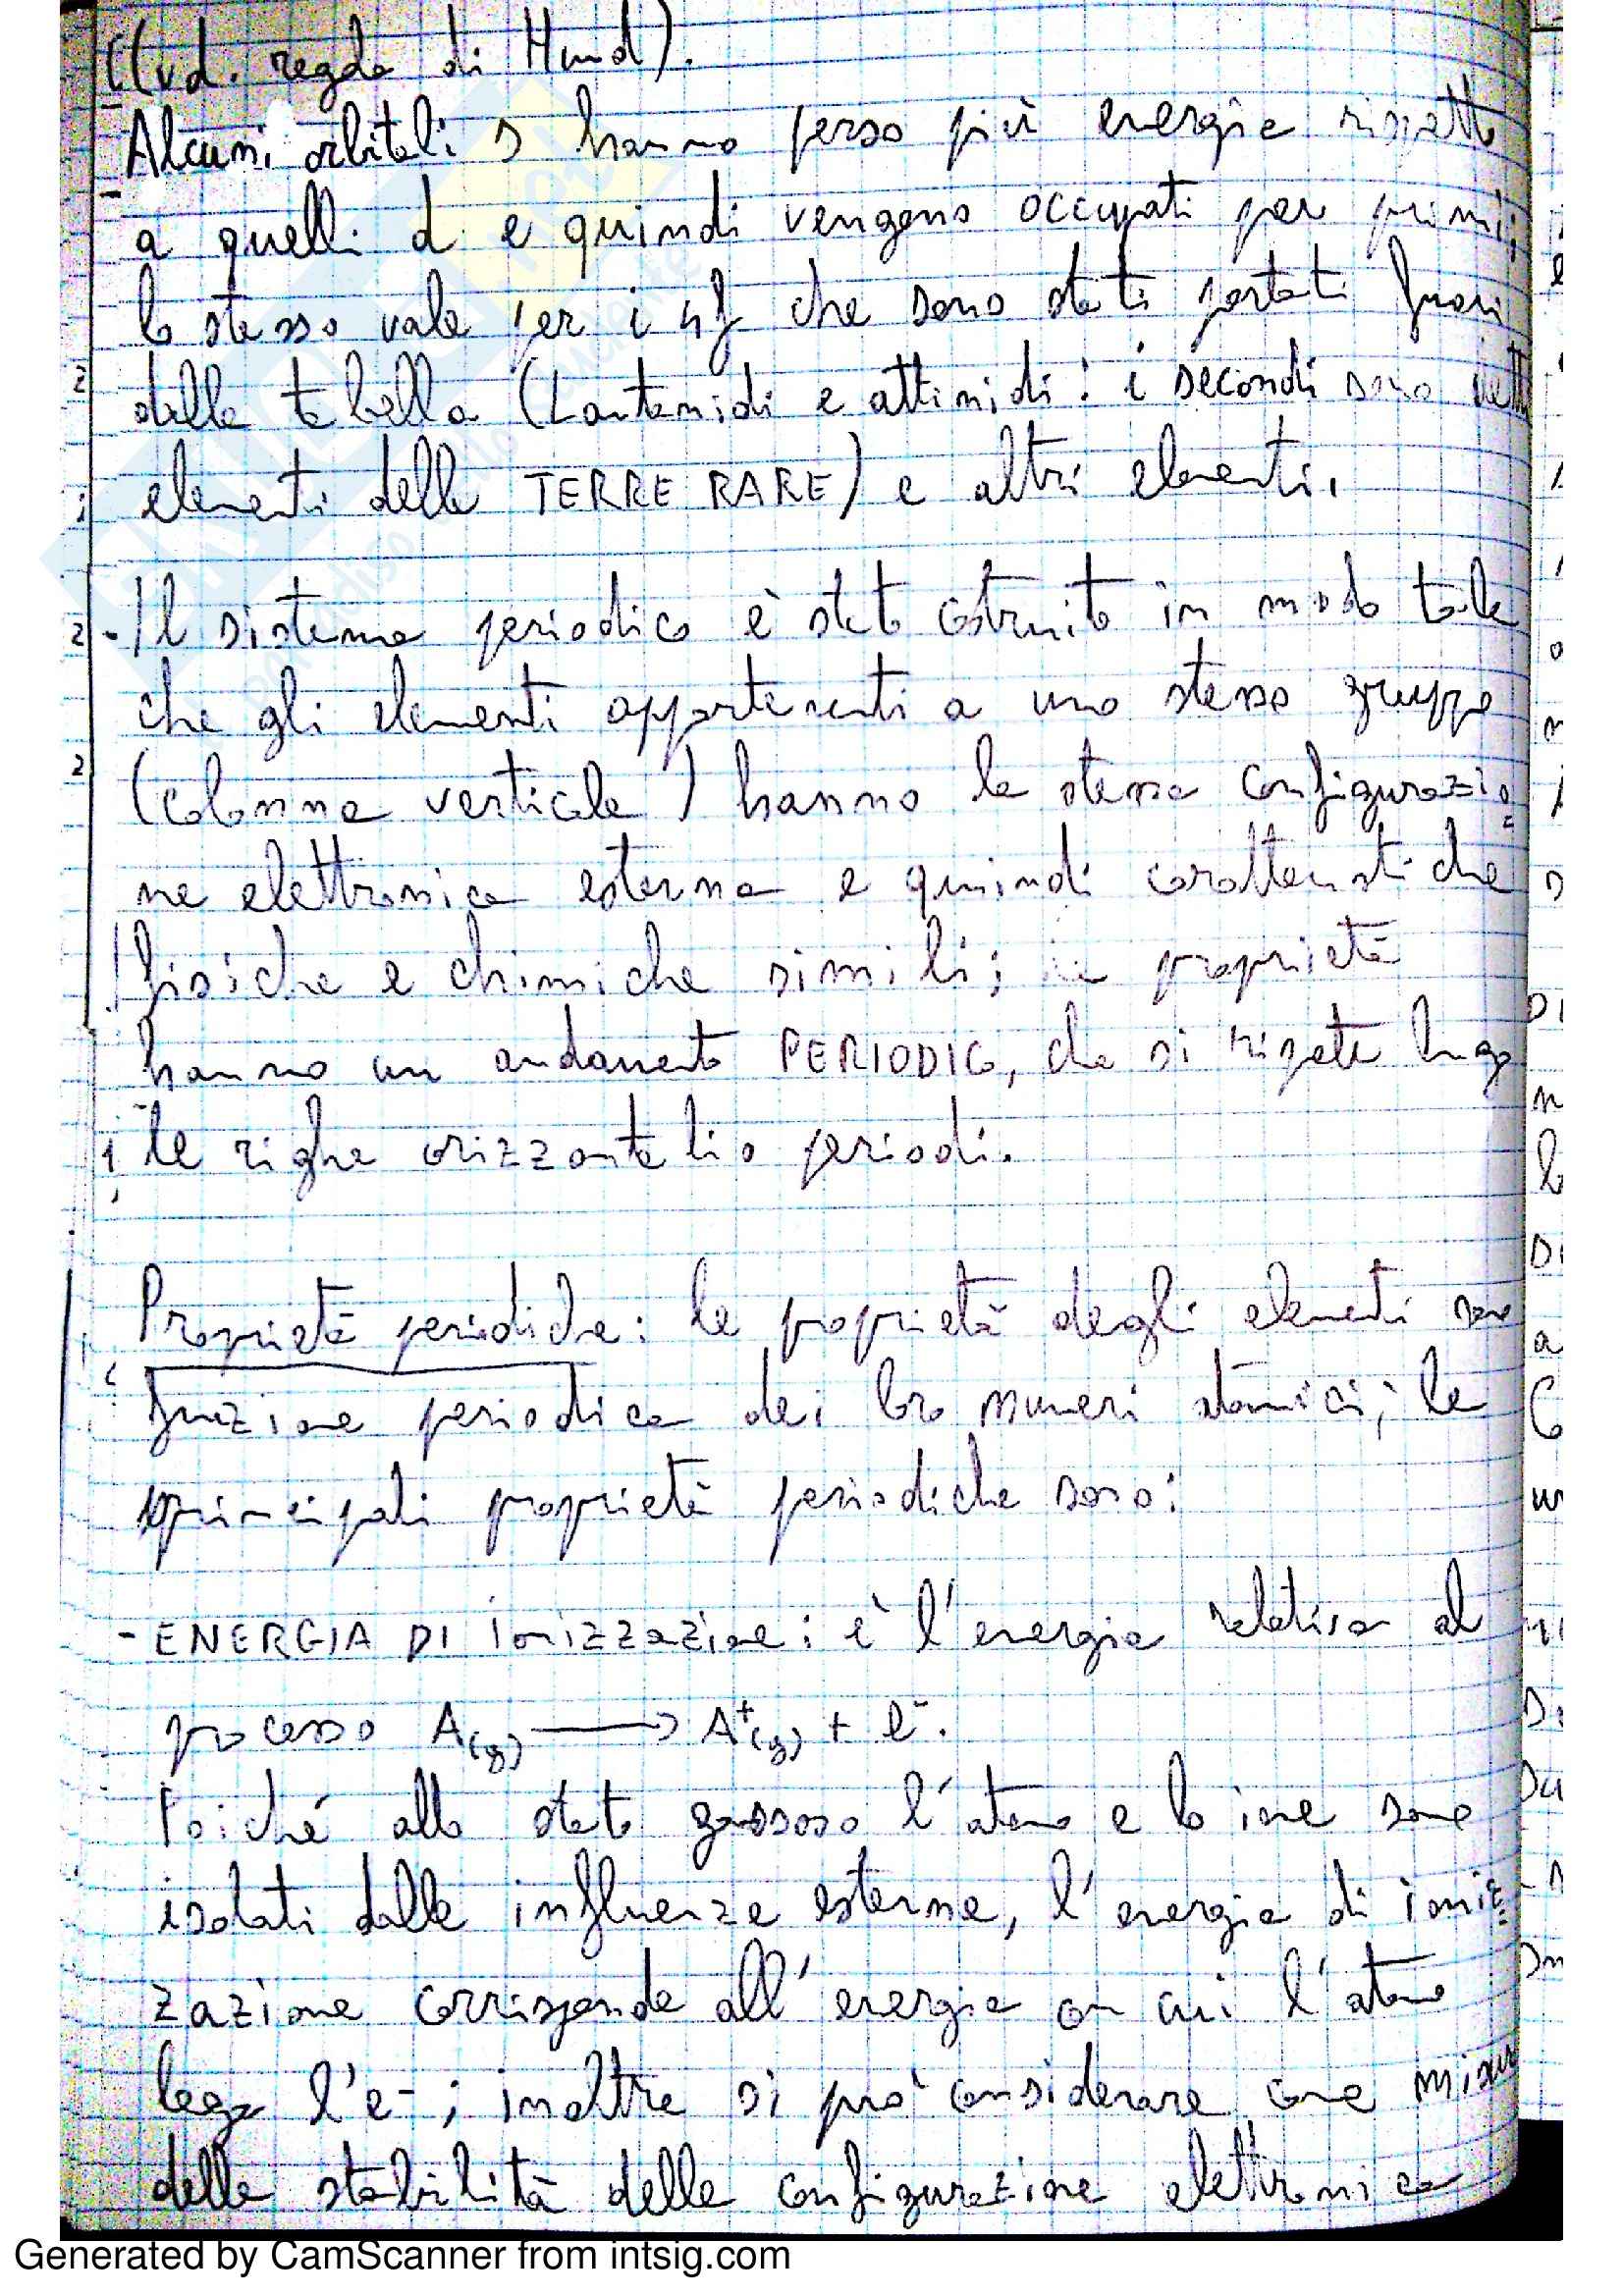 (vd. regola di Hund).
- Alcuni orbitali s hanno perso più energia rispetto
a quelli d e quindi vengono occupati per primi;
lo stesso vale per i 4f che sono stati portati fuori
dalla tabella (Lantanidi e attinidi: i secondi sono detti
elementi delle TERRE RARE) e altri elementi.
- Il sistema periodico è stato costruito in modo tale
che gli elementi appartenenti a uno stesso gruppo
(colonna verticale) hanno la stessa configurazio=
ne elettronica esterna e quindi caratteristiche
fisiche e chimiche simili; le proprietà
hanno un andamento PERIODICO, che si ripete lungo
le righe orizzontali o periodi.
Proprietà periodiche: le proprietà degli elementi sono
funzione periodica dei loro numeri atomici; le
principali proprietà periodiche sono:
- ENERGIA DI ionizzazione: è l'energia relativa al
processo A(g) ⟶ A⁺(g) + e⁻.
Poiché allo stato gassoso l'atomo e lo ione sono
isolati dalle influenze esterne, l'energia di ioniz=
zazione corrisponde all'energia con cui l'atomo
lega l'e⁻; inoltre si può considerare come misura
della stabilità della configurazione elettronica
Generated by CamScanner from intsig.com